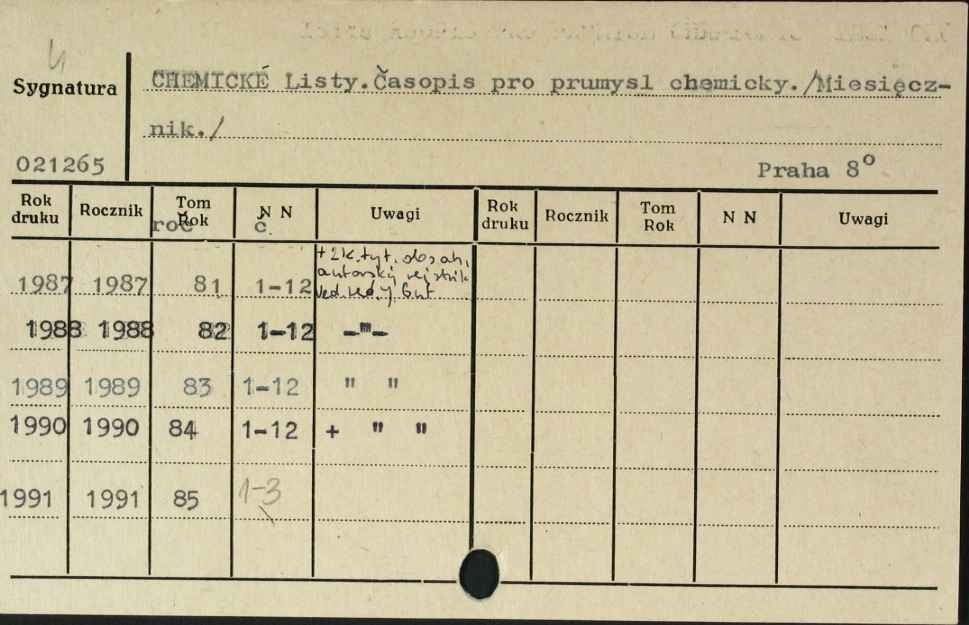 4
Sygnatura
CHEMICKÉ Listy.Časopis pro prumysl chemicky./Miesięcz-
nik./
021265
Praha 8°
Rok druku Rocznik Tom Rok N N Uwagi Rok druku Rocznik Tom Rok N N Uwagi
roč č.
+ 2k.tyt. obsah,
autorský rejstřík
1987 1987 81 1-12 ved.red. J Gut
1988 1988 82 1-12 -"-
1989 1989 83 1-12 " "
1990 1990 84 1-12 + " "
1991 1991 85 1-3